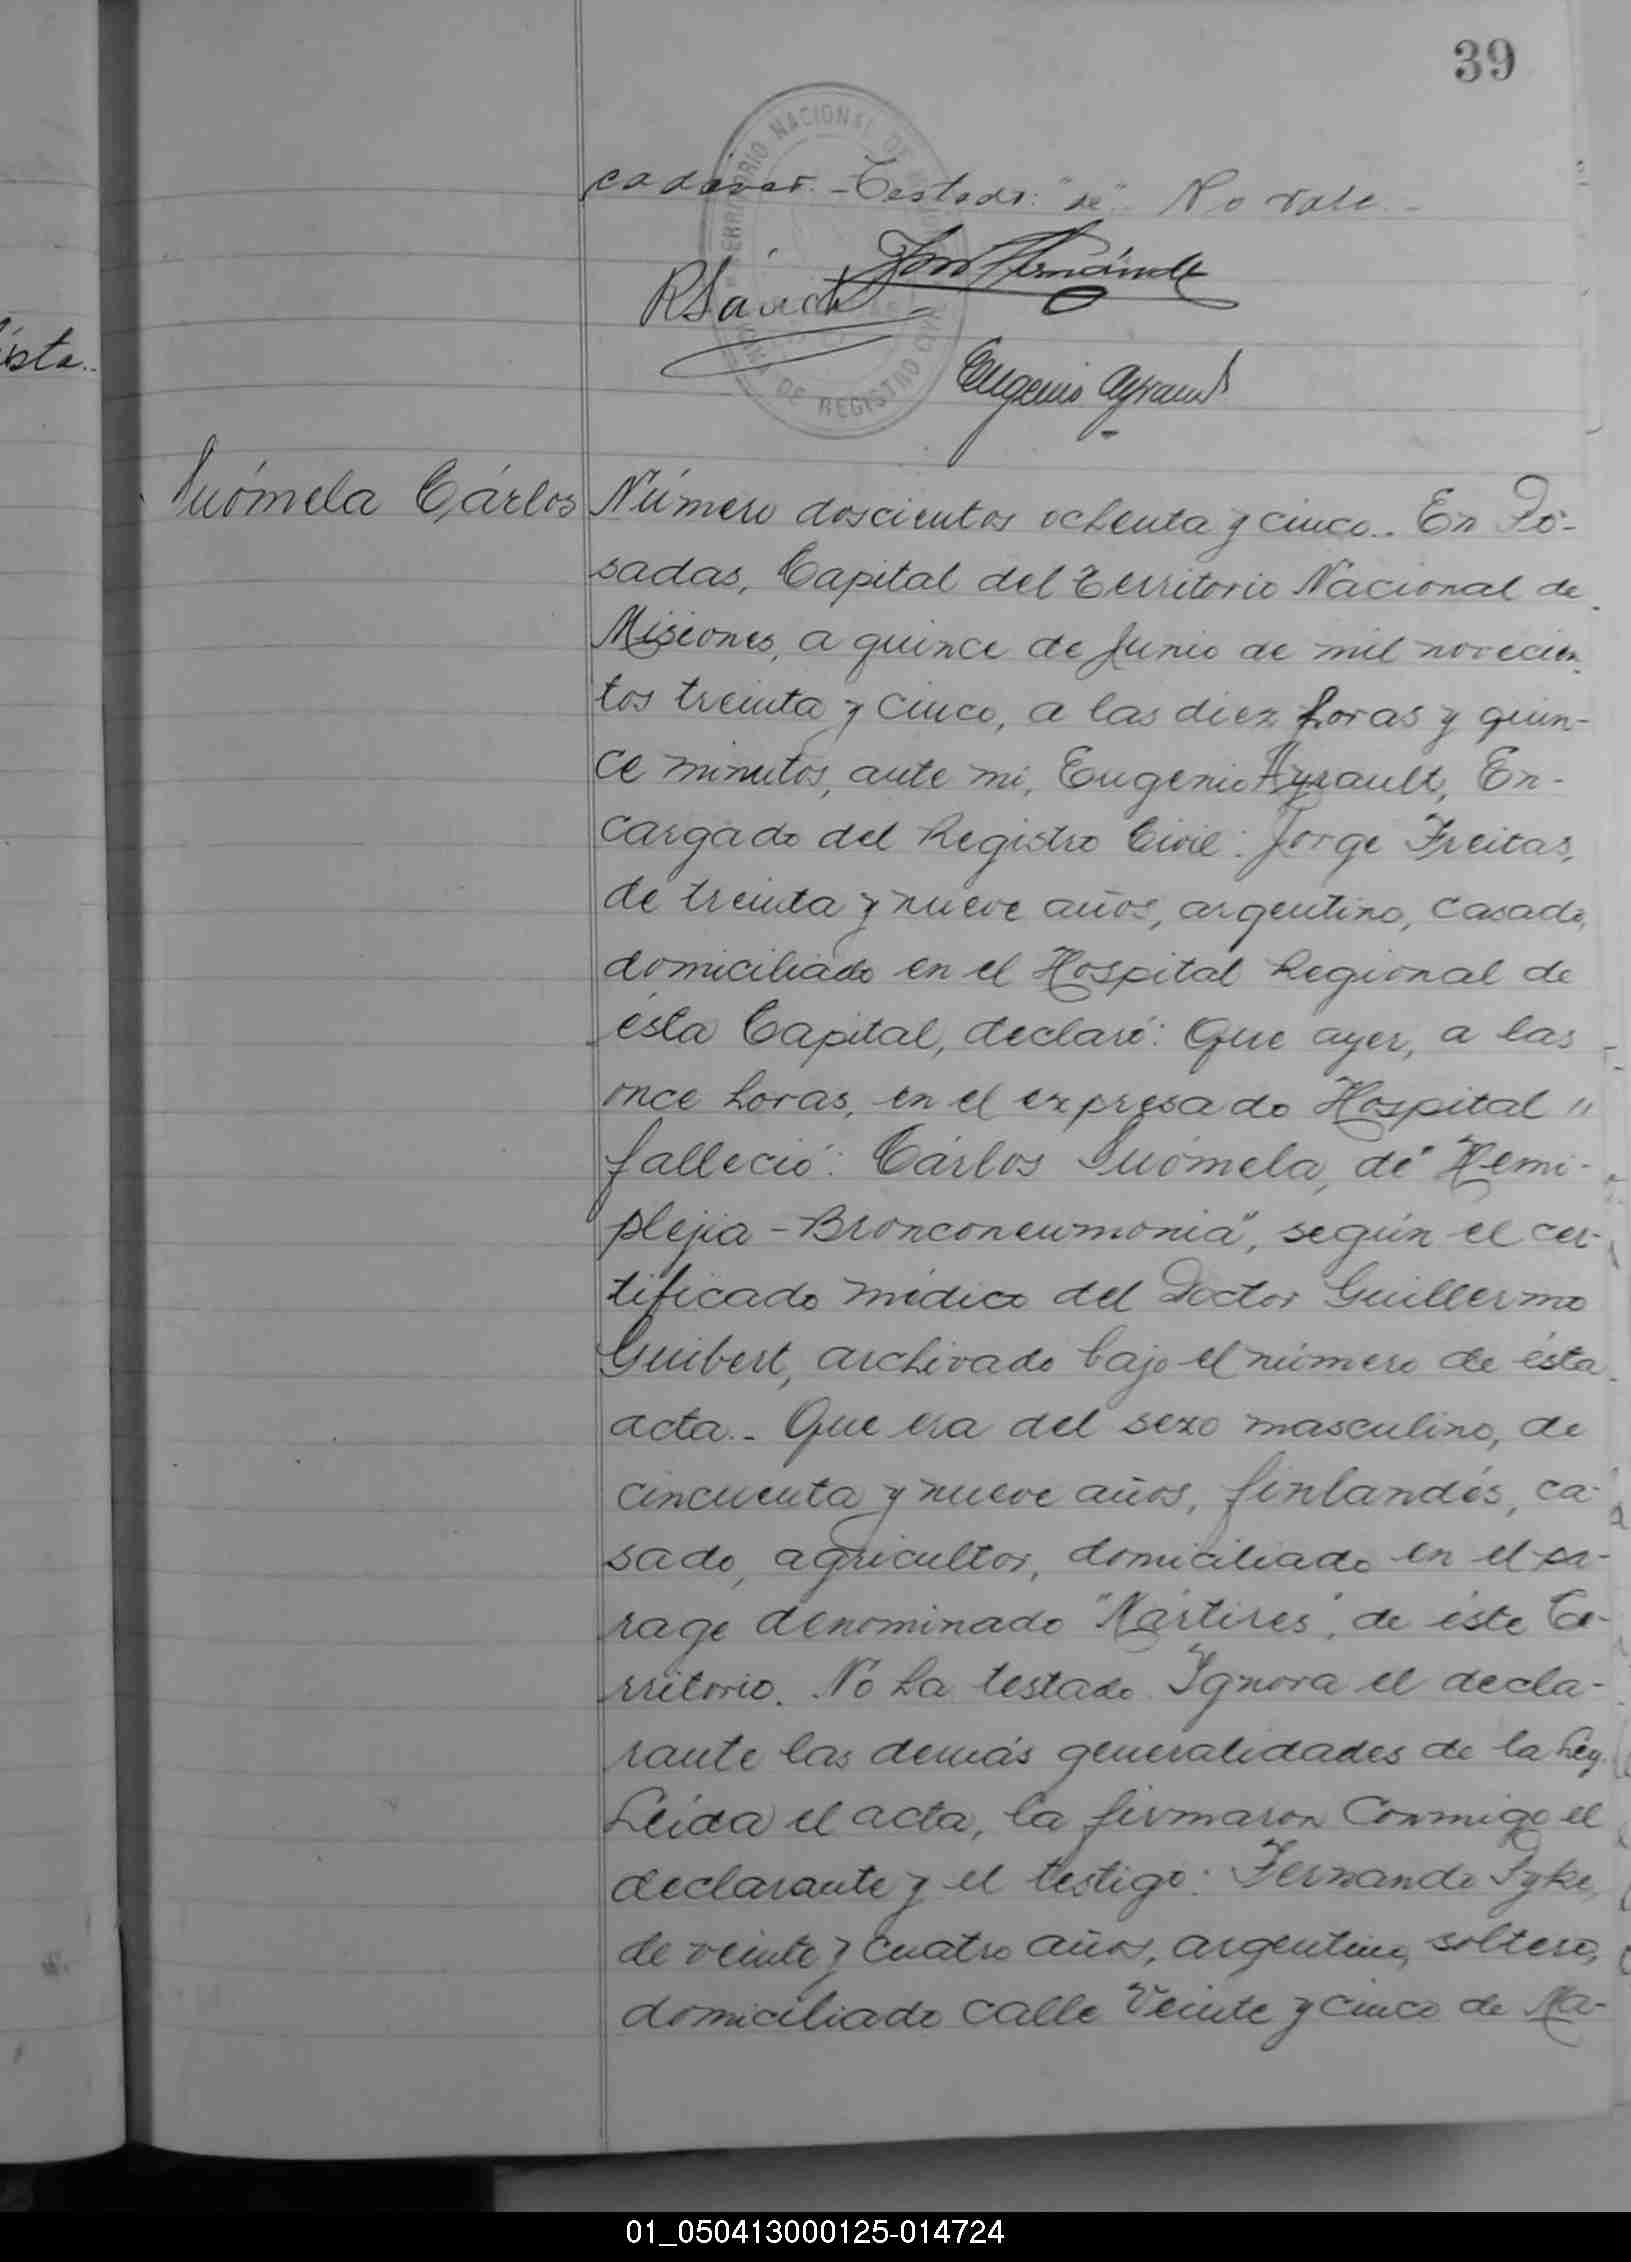 39
TERRITORIO NACIONAL DE
DE REGISTRO CIVIL
cadáver.-Testado: "se". No vale.-
Eugenio Ayrault
ista..
Suómela Cárlos
Número doscientos ochenta y cinco.. En Po-
sadas, Capital del Territorio Nacional de
Misiones, a quince de Junio de mil novecien
tos treinta y cinco, a las diez horas y quin-
ce minutos, ante mi, Eugenio Ayrault, En-
cargado del Registro Civil: Jorge Freitas,
de treinta y nueve años, argentino, casado,
domiciliado en el Hospital Regional de
ésta Capital, declaró: Que ayer, a las
once horas, en el expresado Hospital "
falleció: Cárlos Suómela, de "Hemi-
plejia - Bronconeumonia", según el cer-
tificado médico del Doctor Guillermo
Guibert, archivado bajo el número de ésta
acta.- Que era del sexo masculino, de
cincuenta y nueve años, finlandés, ca-
sado, agricultor, domiciliado en el pa-
rage denominado "Mártires", de éste Te-
rritorio. No ha testado. Ignora el decla-
rante las demás generalidades de la Ley.
Leida el acta, la firmaron conmigo el
declarante y el testigo: Fernando Pyke,
de veinte y cuatro años, argentino, soltero,
domiciliado calle Veinte y cinco de Ma-
01_050413000125-014724